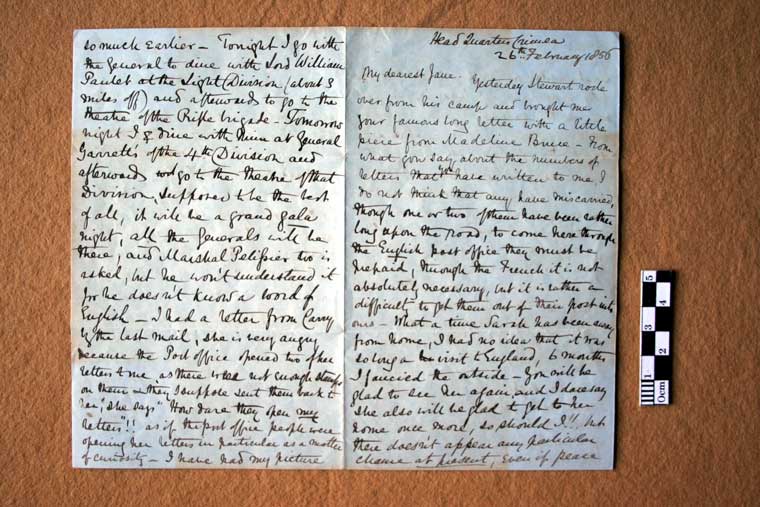 Head Quarters Crimea
26th February 1856
My dearest Jane. Yesterday Stewart rode
over from his camp and brought me
your famous long letter with a little
piece from Madeline Bruce - From
what you say about the numbers of
letters that you have written to me, I
do not think that any have miscarried,
though one or two of them have been rather
long upon the road, to come here through
the English post office they must be
prepaid, through the French it is not
absolutely necessary, but it is rather a
difficulty to get them out of their post into
ours - What a time Sarah has been away
from home, I had no idea that it was
so long a visit to England, 6 months
I fancied the outside - You will be
glad to see her again and I dare say
she also will be glad to get to her
home once more, so should I!!, but
there doesn't appear any particular
chance at present, even if peace
so much earlier - Tonight I go with
the General to dine with Lord William
Paulet at the Light Division (about 3
miles off) and afterwards to go to the
theatre of the Rifle brigade - Tomorrow
night I & dine with him at General
Garrett's of the 4th Division and
afterwards go to the Theatre of that
Division, supposed to be the best
of all, it will be a grand gala
night, all the Generals will be
there, and Marshal Pelissier too is
asked, but he won't understand it
for he doesn't know a word of
English - I had a letter from Carry
by the last mail, she is very angry
because the Post office opened two of her
letters to me as there was not enough stamps
on them - they I suppose sent them back to
her, she says "How dare they open my
letters"!! as if the post office people were
opening her letters in particular as a matter
of curiosity - I have had my picture
0cm 1 2 3 4 5